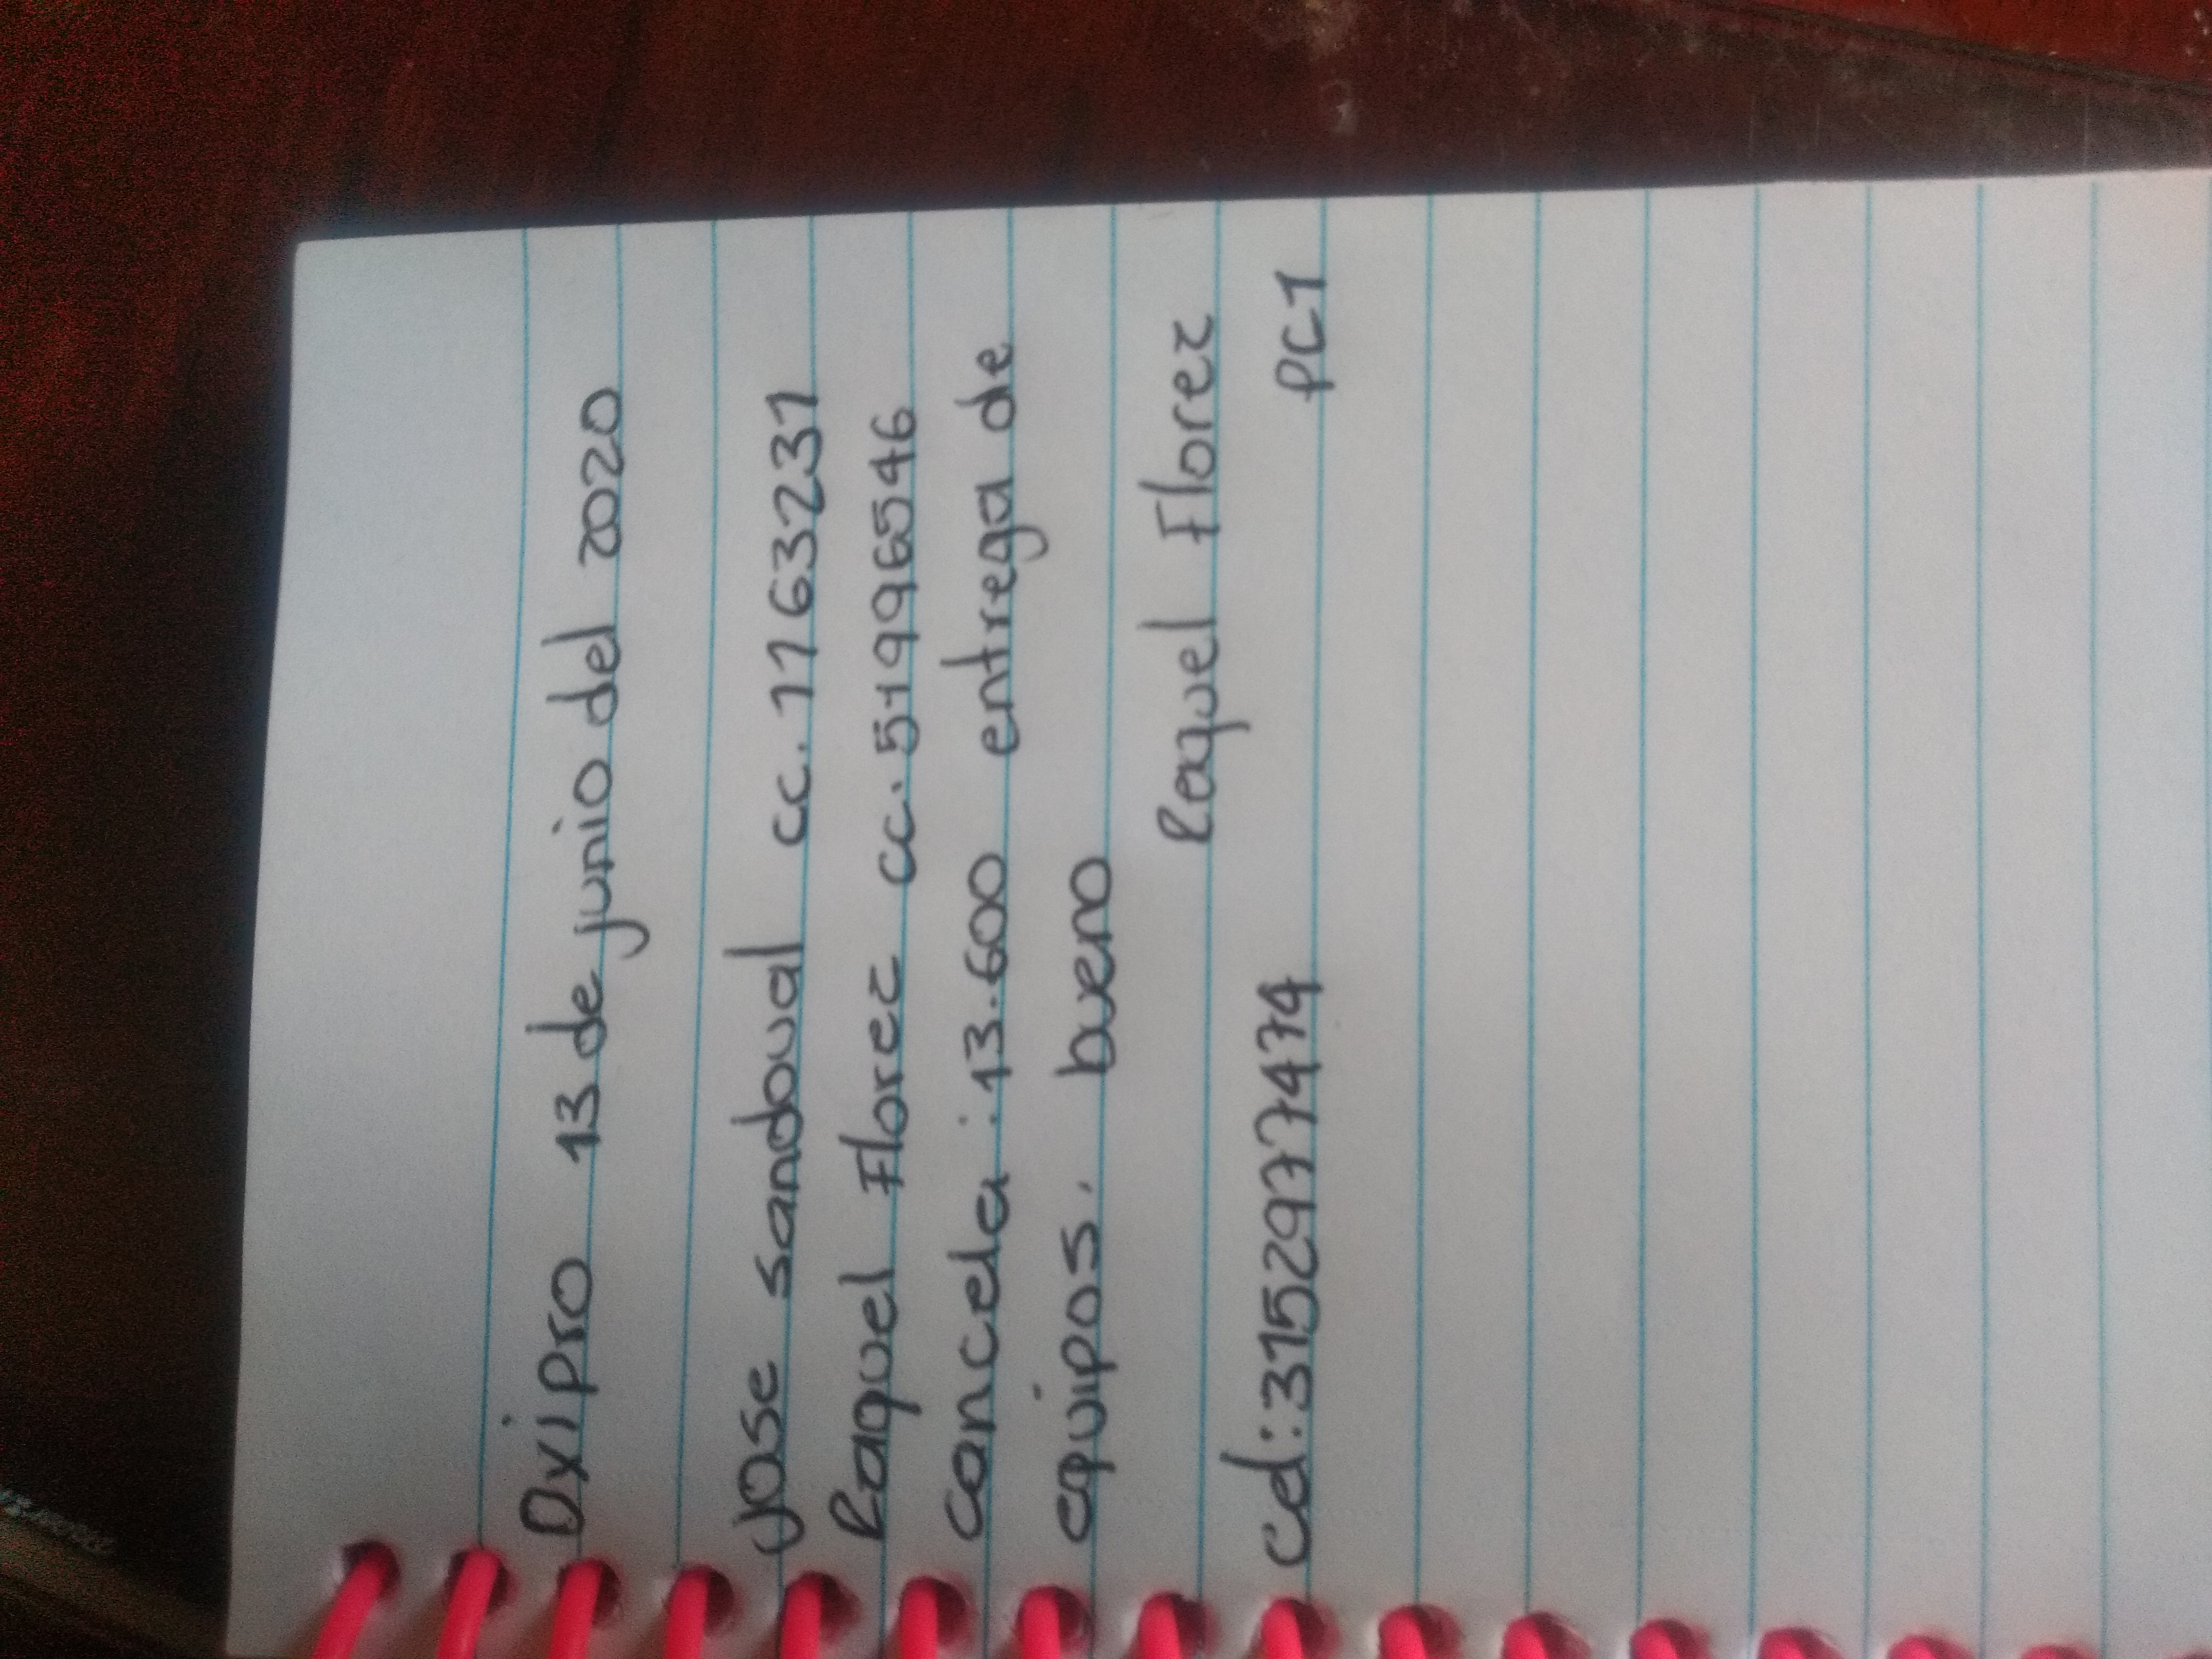 Oxipro 13 de junio del 2020
Jose sandoval cc. 1163231
Raquel Florez cc. 51996546
cancela: 13.600 entrega de
equipos. bueno
Raquel Florez
cd: 3152977474 PC1